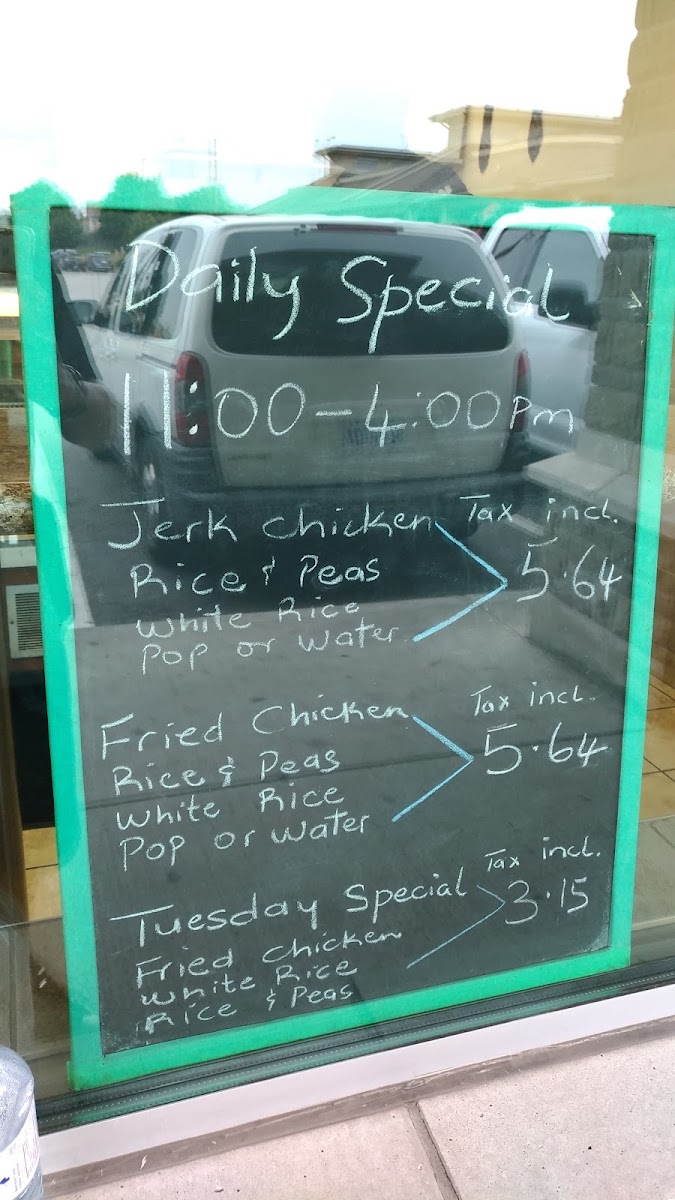 Daily Special
11:00-4:00pm
Jerk chicken Tax incl.
Rice & Peas 5.64
White Rice
Pop or Water
Fried Chicken Tax incl.
Rice & Peas 5.64
White Rice
Pop or Water
Tuesday Special Tax incl.
Fried Chicken 3.15
White Rice
Rice & Peas